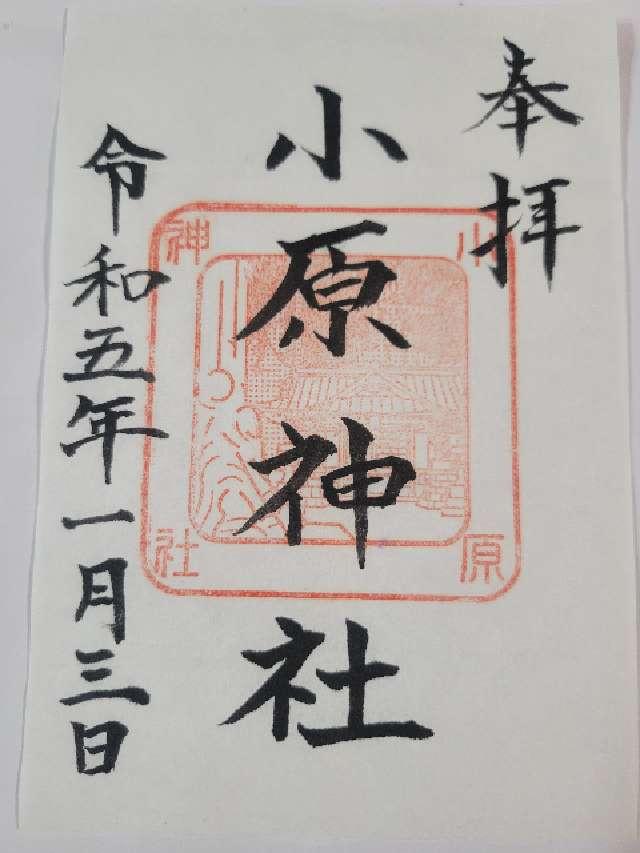 奉拝
小原神社
令和五年一月三日
小原
神社